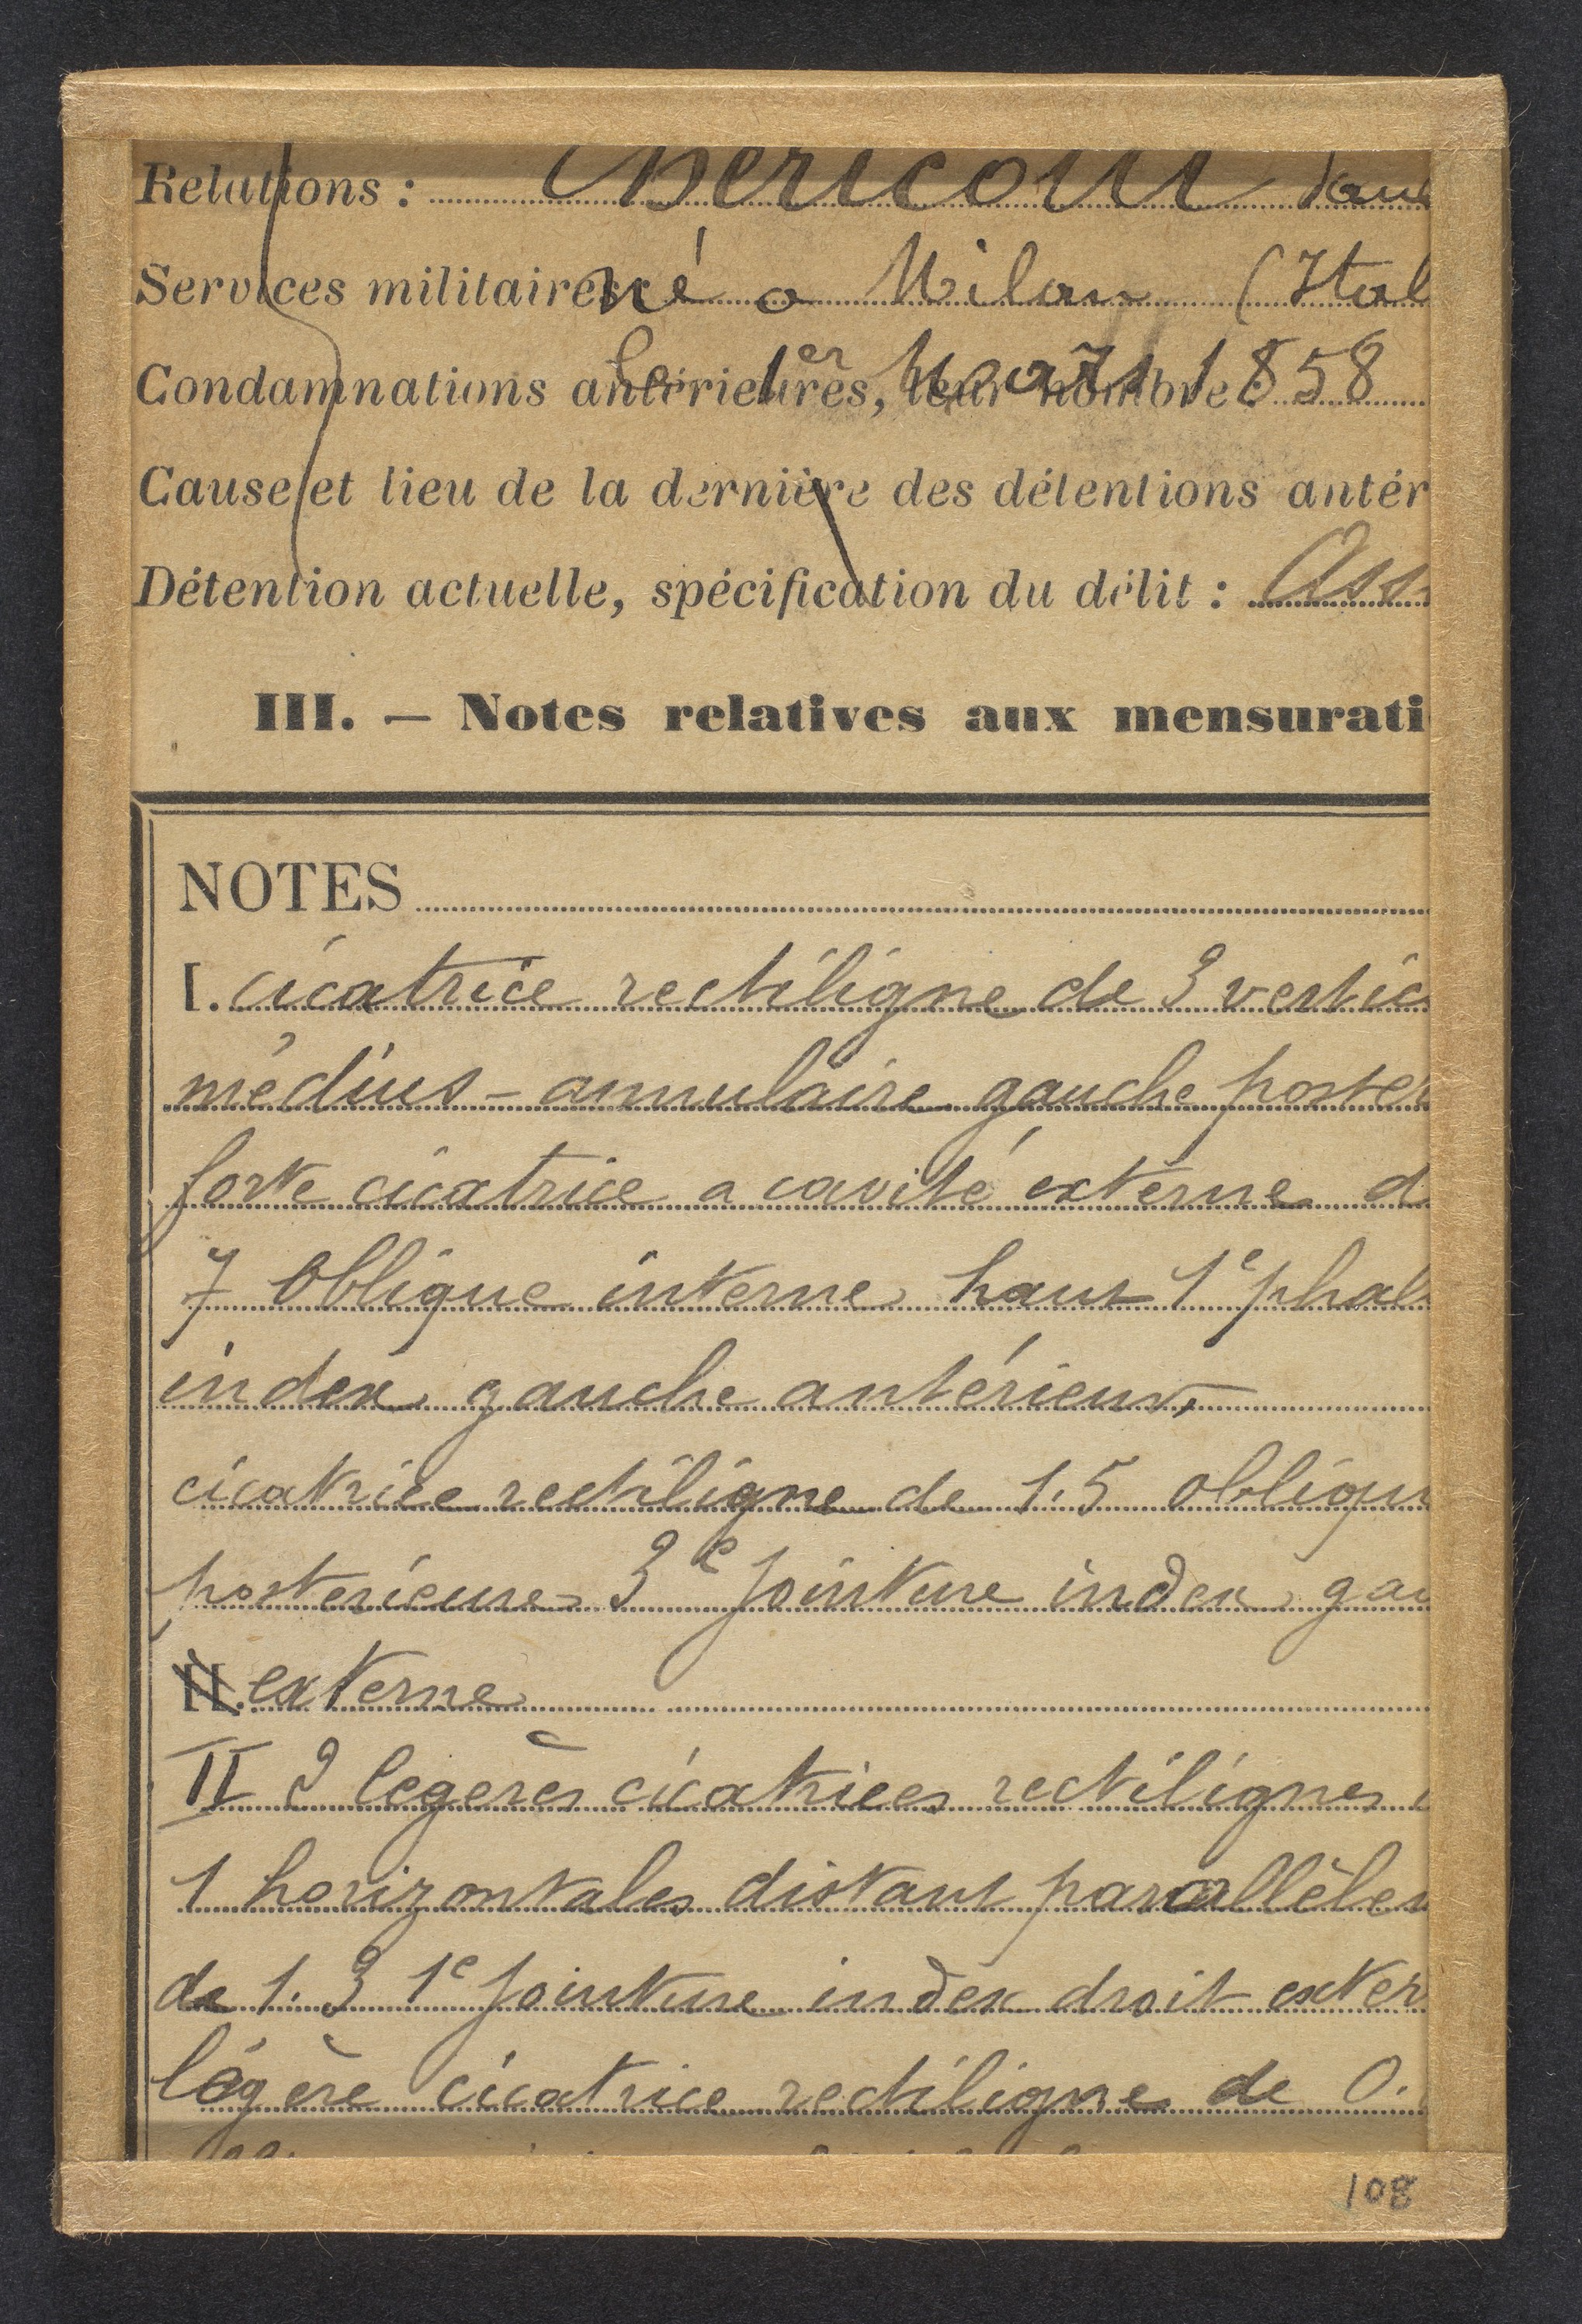 Relations : Bericoui
Services militaires né a Milan (Ital
Condamnations antérieures, leur nombre : Le 1er Mars 1858
Cause et lieu de la dernière des détentions antér
Détention actuelle, spécification du délit : Ass
III. — Notes relatives aux mensurati
NOTES
I. cicatrice rectiligne de 3 vertic
médius - annulaire gauche poster
forte cicatrice a cavité externe d
7 oblique interne haut 1e phal
index gauche antérieur,
cicatrice rectiligne de 1.5 obliqu
posterieure 3e jointure index gau
II. externe
II 2 legères cicatrices rectilignes
1 horizontales distant parallèlem
de 1.3 1e jointure index droit exter
légère cicatrice rectiligne de 0.
108